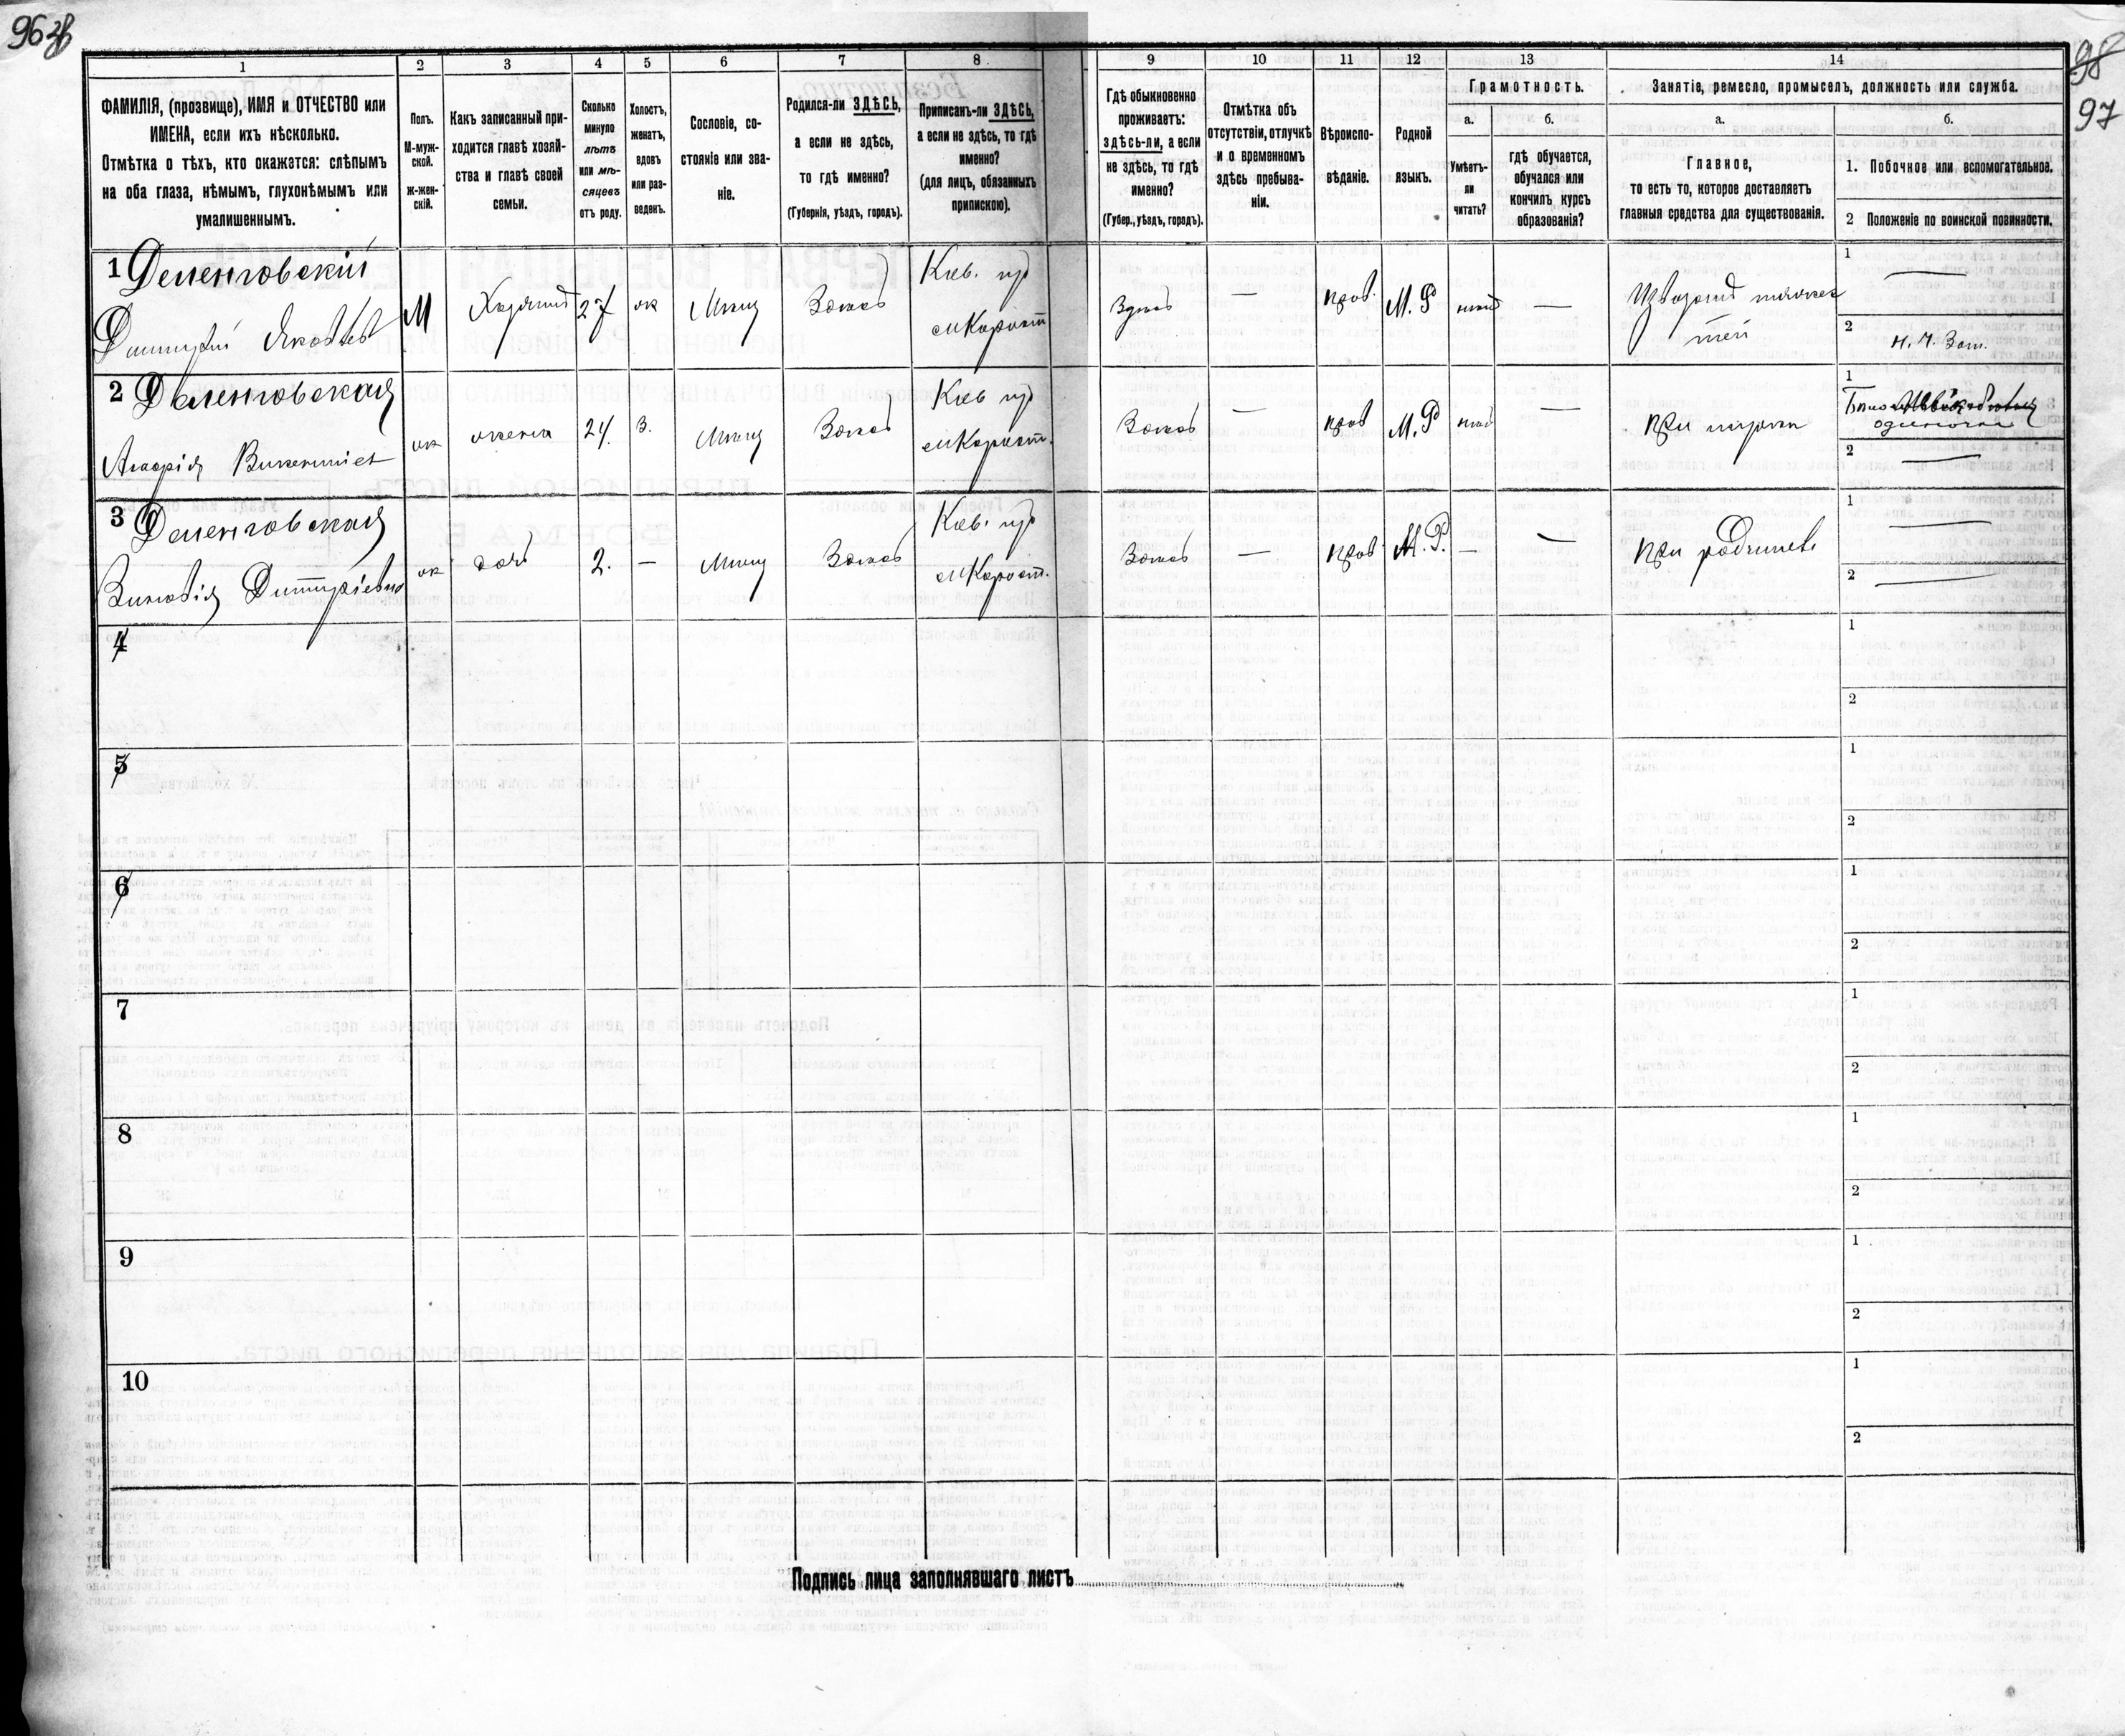 96 зв
98
97
1
2
3
4
5
6
7
8
9
10
11
12
13
14
ФАМИЛІЯ, (прозвище), ИМЯ и ОТЧЕСТВО или
ИМЕНА, если ихъ нѣсколько.
Отмѣтка о тѣхъ, кто окажатся: слѣпымъ
на оба глаза, нѣмымъ, глухонѣмымъ или
умалишеннымъ.
Полъ.
М-муж-
ской.
ж-жен-
скій.
Какъ записанный при-
ходится главѣ хозяй-
ства и главѣ своей
семьи.
Сколько
минуло
лѣтъ
или мѣ-
сяцевъ
отъ роду.
Холостъ,
женатъ,
вдовъ
или раз-
веденъ.
Сословіе, со-
стояніе или зва-
ніе.
Родился-ли ЗДѢСЬ,
а если не здѣсь,
то гдѣ именно?
(Губернія, уѣздъ, городъ).
Приписанъ-ли ЗДѢСЬ,
а если не здѣсь, то гдѣ
именно?
(для лицъ, обязанныхъ
припискою).
Гдѣ обыкновенно
проживаетъ:
здѣсь-ли, а если
не здѣсь, то гдѣ
именно?
(Губер., уѣздъ, городъ).
Отмѣтка объ
отсутствіи, отлучкѣ
и о временномъ
здѣсь пребыва-
ніи.
Вѣроиспо-
вѣданіе.
Родной
языкъ.
Грамотность.
а.
Умѣетъ-
ли
читать?
б.
гдѣ обучается,
обучался или
кончилъ курсъ
образованія?
Занятіе, ремесло, промыселъ, должность или служба.
а.
Главное,
то есть то, которое доставляетъ
главныя средства для существованія.
б.
1. Побочное или вспомогательное.
2 Положеніе по воинской повинности.
1 Деменговский
Дмитрій Яковлев
М
Хазяинъ
27
ж
Мѣщ
Здесь
Кіев. гу
м Корост
Здесь
—
прав.
М. Р
нет
—
Извозъ
1
—
2
2
Деменговская
ж
жена
24.
З.
Мѣщ
Здесь
Кіев гу
м Корост.
Здесь
—
прав
М. Р
нет
—
при муже
1
2
—
3 Деменговская
Зиновія Дмитріевна
ж
дочь
2.
—
Мѣщ
Здесь
Кіев. гу
м Корост.
Здесь
—
прав
М. Р.
—
—
при родителе
1
—
2
—
4
1
2
5
1
2
6
1
2
7
1
2
8
1
2
9
1
2
10
1
2
Подпись лица заполнявшаго листъ